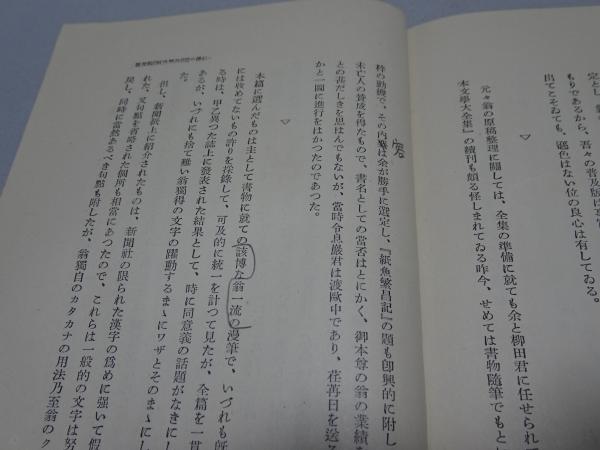 定とし、
もりであるから、吾々の普及版は
出てこそゐても、遜色はない位の良心は有してゐる。
▽
元々翁の原稿整理に關しては、全集の準備に就ても余と柳田君に任せられて
本文學大全集』の續刊も頗る怪しまれてゐる昨今、せめては書物隨筆でもと
粹の動機で、その内容は余が勝手に選定し、『紙魚繁昌記』の題も卽興的に附し
未亡人の賛成を得たもので、書名としての當否はとにかく、御本尊の翁の業績を
との甚だしきを思はんでもないが、當時令息巌君は渡歐中であり、荏苒日を送る
かと一圖に進行をはかつたのであつた。
▽
本篇に選んだものは主として書物に就ての該博な翁一流の漫筆で、いづれも旣
には收めてないもの許りを採錄して、可及的に統一を計つて見たが、全篇を一貫
る時は、甲乙異つた誌上に發表された結果として、時に同意義の話題がなきにし
あるが、いづれにも捨て難い翁獨得の文字の躍動するまゝにワザとそのまゝにし
但し、新聞紙上に紹介されたものは、新聞社の限られた漢字の爲めに强いて假
れた、又句點を省略された個所も相當にあつたので、これらは一般的の文字は努
戾し、同時に當然あるべき句點も附したが、翁獨自のカタカナの用法乃至翁のク